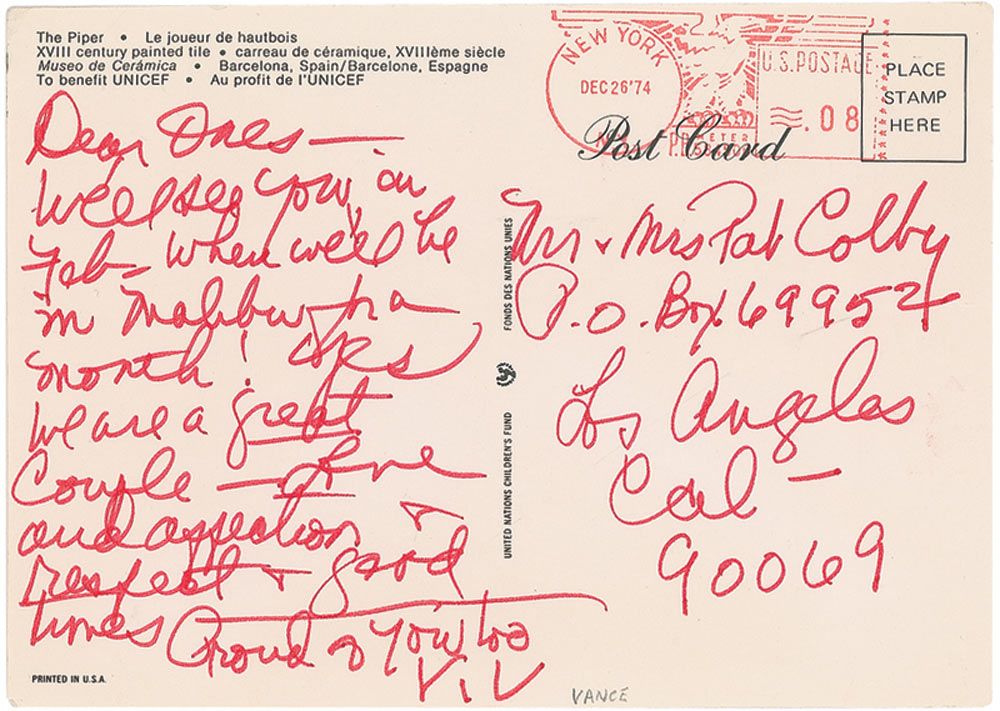 The Piper • Le joueur de hautbois
XVIII century painted tile • carreau de céramique, XVIIIème siècle
Museo de Cerámica • Barcelona, Spain/Barcelone, Espagne
To benefit UNICEF • Au profit de l'UNICEF
Dear Ones —
We'll see you in
Feb — when we'll be
in Malibu for a
month! Yes
we are a great
Couple — Love
and affection &
respect & good
times Proud of you too
Viv
PRINTED IN U.S.A.
NEW YORK
DEC 26 '74
N.Y.
U.S. POSTAGE
.08
METER
PLACE
STAMP
HERE
Post Card
FONDS DES NATIONS UNIES
UNITED NATIONS CHILDREN'S FUND
Mr & Mrs Pat Colby
P.O. Box 69952
Los Angeles
Cal —
90069
VANCE